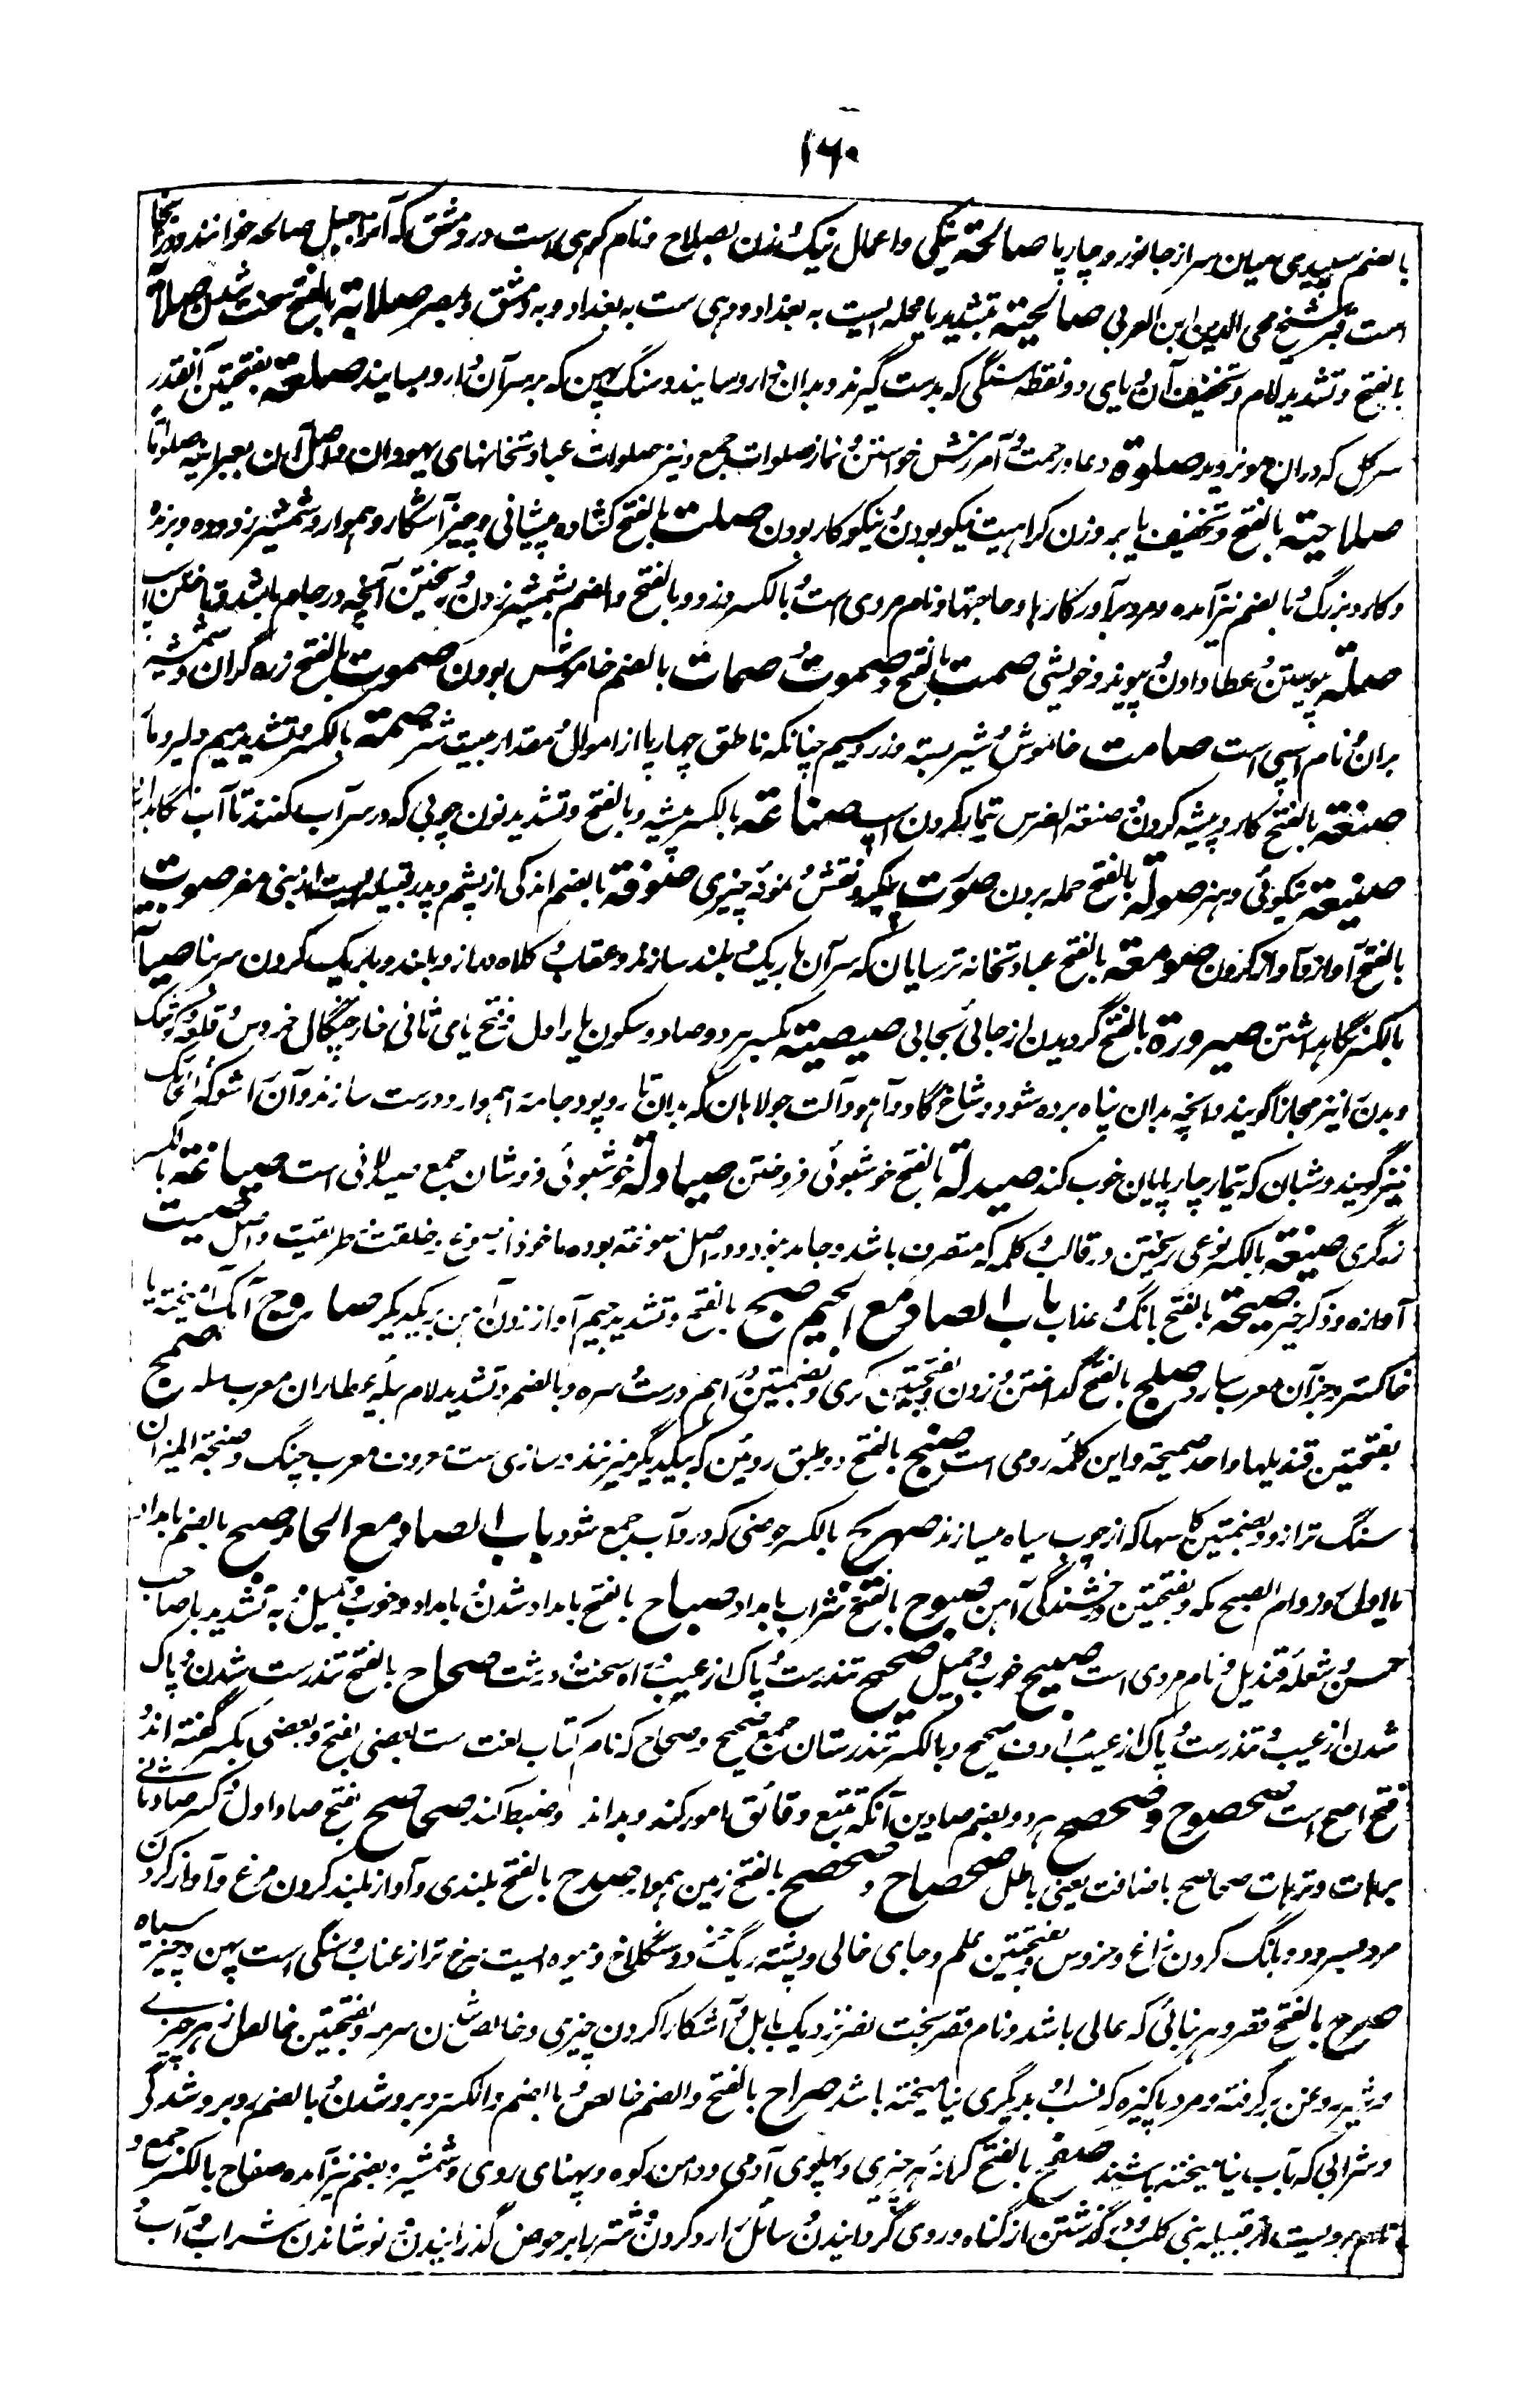 ۱۶۰
بالضم سپیدی میان سر از جانور و چارپا صالحة نیکی و اعمال نیک و زن بصلاح و نام کوهی است در دمشق که آنرا جبل صالحه خوانند و در آنجا
است قبر شیخ محی الدین ابن العربی صالحیته بتشدید یا محله ایست به بغداد و دهی ست به بغداد و به دمشق و بمصر صلابة بالفتح سخت شدن صلاة
بالفتح و تشدید لام و تخفیف آن و یای دو نقطه سنگی که بدست گیرند و بدان دارو سایند و سنگ پهن که بر سر آن دارو سایند صلعة بفتحتین آنقدر
سر کل که در آن مو نروید صلوة دعا و رحمت و آمرزش خواستن و نماز صلوات جمع و نیز صلوات عبادتخانهای یهودان و اصل آن بعبرانیه صلوتا
صلاحیته بالفتح و تخفیف یا بر وزن کراهیت نیکو بودن و نیکوکار بودن صلت بالفتح کشاده پیشانی و چیز آشکار و هموار و شمشیر زدوده و برنده
و کارد بزرگ و بالضم نیز آمده و مرد برآور کارها و حاجتها و نام مردی است و بالکسر دزد و بالفتح و الضم بشمشیر زدن و ریختن آنچه در جام باشد و تاختن اسپ
صلة پیوستن و عطا دادن و پیوند و خویشی صمت بالفتح و صموت و صمات بالضم خاموش بودن صموت بالفتح زره گران و شمشیر
بران و نام اسپی است صامت خاموش و شیر بسته و زر و سیم چنانکه ناطق چهارپا از اموال و مقدار بیست شتر صمة بالکسر و تشدید میم دلیر و مار
صنعة بالفتح کار و پیشه کردن و صنعة الفرس تیمار کردن اسپ صناعة بالکسر پیشه و بالفتح و تشدید نون چوبی که در سر آب کنند تا آب نگاه دارد
صنیعة نیکوئی و هنر صولة بالفتح حمله بردن صورت پیکر و نقش و نمونه چیزی صوفة بالضم اندکی از پشم و پدر قبیله ایست از بنی مضر صوت
بالفتح آواز و آواز کردن صومعة بالفتح عبادتخانه ترسایان که سر آن باریک و بلند سازند و عقاب و کلاه دراز و بلند و باریک کردن سر بنا صیانة
بالکسر نگاهداشتن صیرورة بالفتح گردیدن از جائی بجائی صیصیته بکسر هر دو صاد و سکون یای اول و فتح یای ثانی خار چنگال خروس و قلعه و کوشک
و بدن را نیز مجازا گویند و آنچه بدان پناه برده شود و شاخ گاو و آهو و آلت جولاهان که بدان تار و پود جامه را هموار و درست سازند و آن را شوکة الحائک
نیز گویند و شبان که تیمار چارپایان خوب کند صیدلة بالفتح خوشبوئی فروختن صیادلة خوشبوئی فروشان جمع صیدلانی است صیاغة بالکسر
زرگری صیغة بالکسر نوعی ریختن در قالب و کلمه که متصرف باشد و جامد نبود و در اصل صوغه بوده ماخوذ از صوغ و خلقت و طریقت و اصل صیت
آوازه و ذکر خیر صیحة بالفتح بانگ و عذاب باب الصاد مع الجیم صج بالفتح و تشدید جیم آواز زدن آهن بر یکدیگر صاروج آهک آمیخته با
خاکستر و جز آن معرب سارو صلج بالفتح گداختن و زدن و بفتحتین کری و بضمتین دراهم درست و سره و بالضم و تشدید لام بیلهٔ عطاران معرب سله صمج
بفتحتین قندیلها واحد صمجة و این کلمهٔ رومی است صنج بالفتح دو طبق روئین که بیکدیگر میزنند و سازی ست معروف معرب چنگ و صنجة المیزان
سنگ ترازو و بضمتین کاسها که از چوب سیاه میسازند صهریج بالکسر حوضی که در او آب جمع شود باب الصاد مع الحاء صبح بالضم بامداد
یا اول روز و ام الصبح مکه و بفتحتین درخشندگی آهن صبوح بالفتح شراب بامداد صباح بالفتح بامداد شدن و بامداد و خوب و جمیل و به تشدید با صاحب
حسن و شعلهٔ قندیل و نام مردی است صبیح خوب و جمیل صحیح تندرست و پاک از عیب و راه سخت و درشت صحاح بالفتح تندرست شدن و پاک
شدن از عیب و تندرست و پاک از عیب مرادف صحیح و بالکسر تندرستان جمع صحیح و صحاح که نام کتاب لغت ست بعضی بفتح و بعضی بکسر گفته اند و
فتح اصح است صحصوح و صحصح هر دو بضم صادین آنکه تتبع دقائق امور کند و بداند و ضبط کند صحاصح بفتح صاد اول و کسر صاد ثانی
برهات و ترهات صحاصح باضافت یعنی باطل صحصاح و صحصح بالفتح زمین هموار صدح بالفتح بلندی و آواز بلند کردن مرغ و آواز کردن
مرد بسرود و بانگ کردن زاغ و خروس و بفتحتین علم و جای خالی و پشته ریگ خرد و سنگلاخ و میوه ایست سرخ تر از عناب و سنگی است پهن و چیز سیاه
صرح بالفتح قصر و هر بنائی که عالی باشد و نام قصر بخت نصر نزدیک بابل و آشکارا کردن چیزی و خالص شدن سرمه و بفتحتین خالص از هر چیزی
و شیر روغن برگرفته و مرد پاکیزه که نسب او بدیگری نیامیخته باشد صراح بالفتح و الضم خالص و بالضم و الکسر روبرو شدن و بالضم روبرو شدگی
و شرابی که بآب نیامیخته باشند صفح بالفتح کرانهٔ هر چیزی و پهلوی آدمی و دامن کوه و پهنای روی و شمشیر و بضم نیز آمده صفاح بالکسر جمع و
نام مردیست از قبیله بنی کلب و در گذشتن از گناه و روی گردانیدن و سائل را رد کردن و شتر را بر حوض گذرانیدن و نوشاندن شراب و آب و